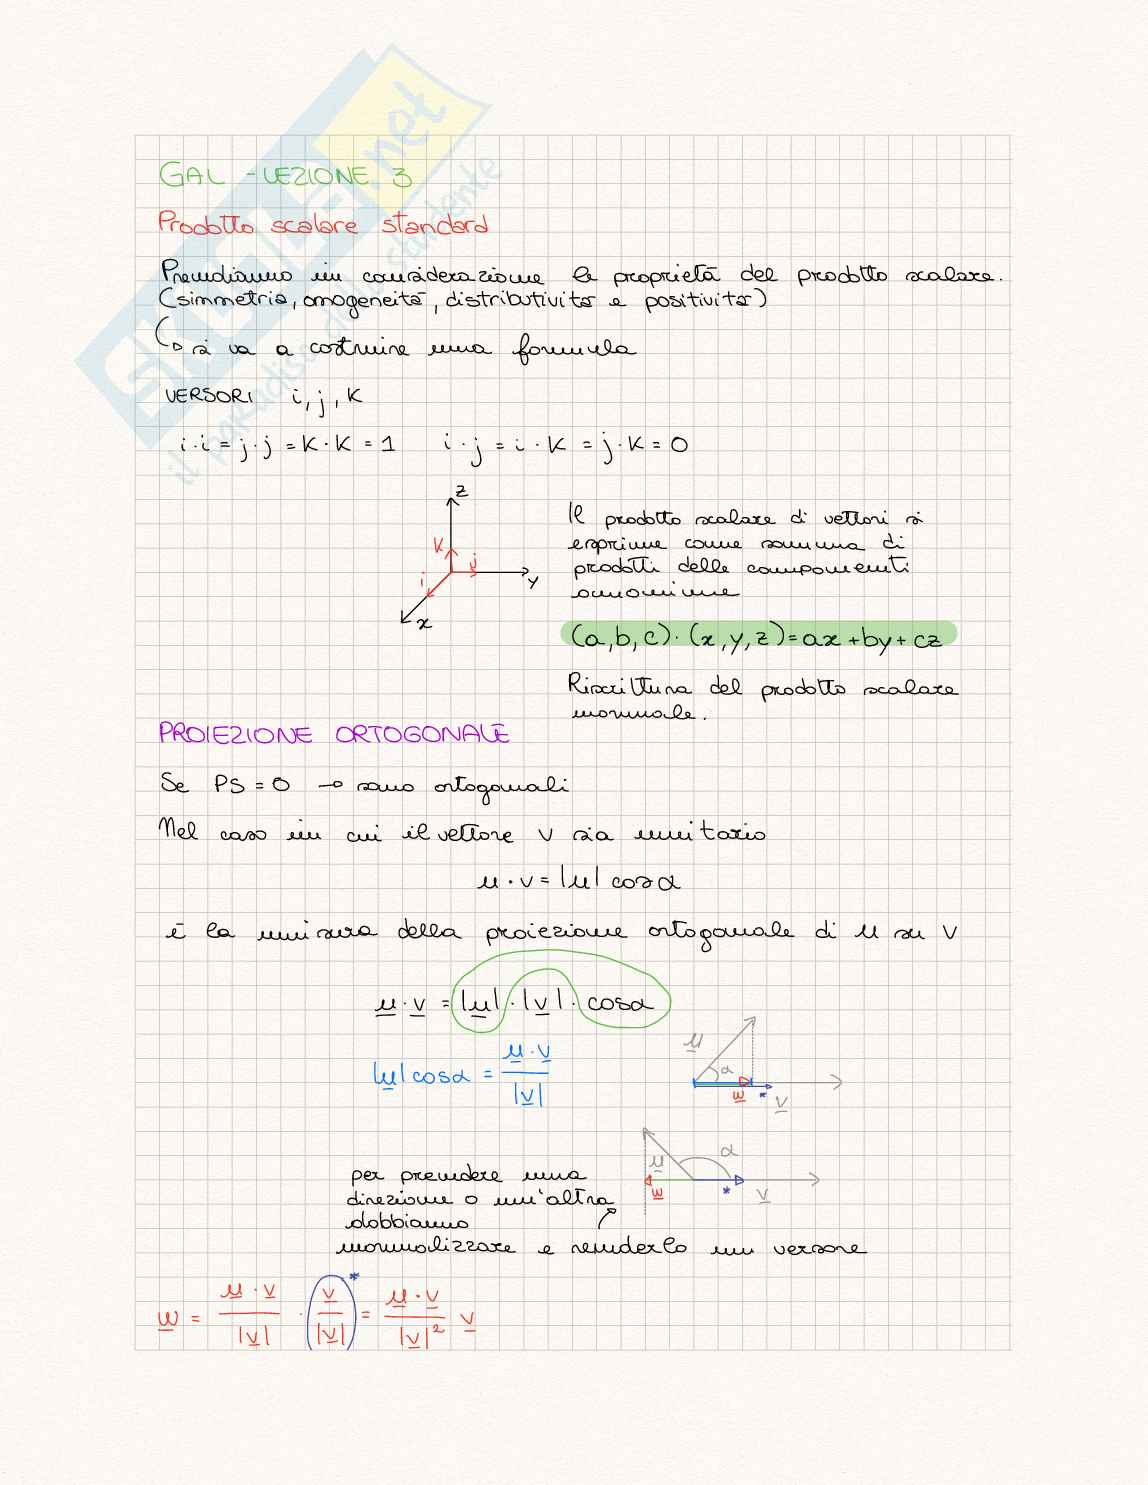 GAL - LEZIONE 3
Prodotto scalare standard
Prendiamo in considerazione le proprietà del prodotto scalare.
(simmetria, omogeneità, distributività e positività)
si va a costruire una formula
VERSORI i, j, K
i · i = j · j = K · K = 1 i · j = i · K = j · K = 0
z
K
j
i
y
x
Il prodotto scalare di vettori si
esprime come somma di
prodotti delle componenti
omonime
(a, b, c) · (x, y, z) = ax + by + cz
Riscrittura del prodotto scalare
normale.
PROIEZIONE ORTOGONALE
Se PS = 0 → sono ortogonali
Nel caso in cui il vettore v sia unitario
u · v = |u| cos α
è la misura della proiezione ortogonale di u su v
u · v = |u| · |v| · cosα
|u| cosα = u · v / |v|
u
α
w * v
u
α
w * v
per prendere una
direzione o un'altra
dobbiamo
normalizzare e renderlo un versore
w = u · v / |v| · (v / |v|)* = u · v / |v|² v
skuola.net
il paradiso dello studente